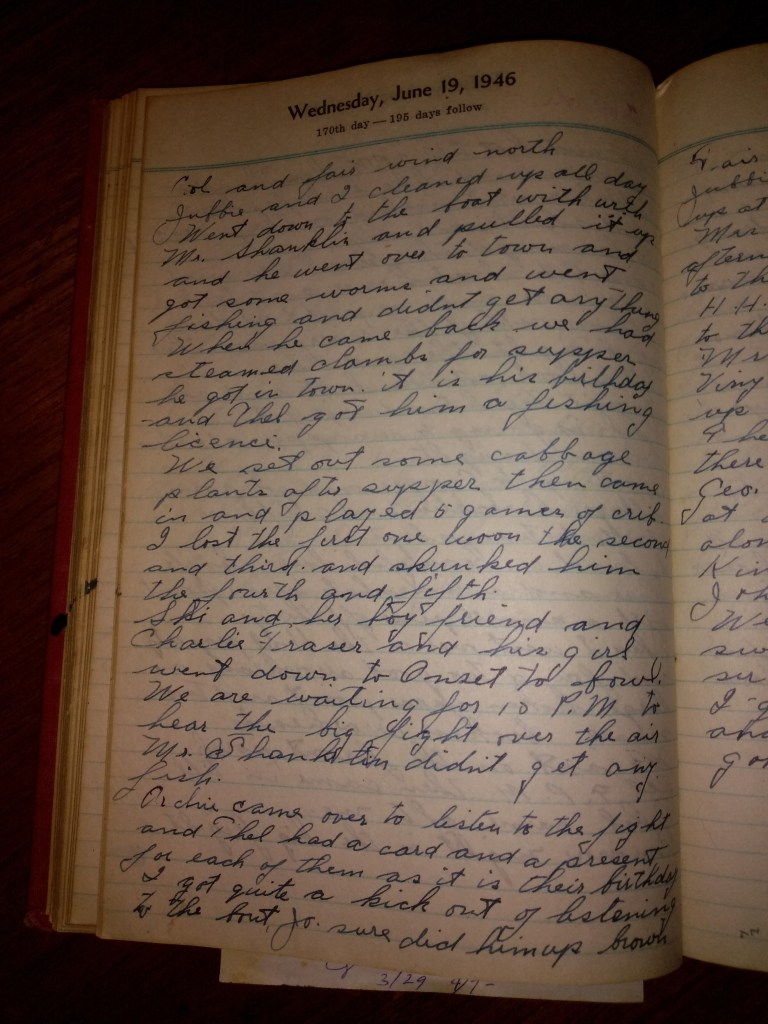 Wednesday, June 19, 1946
170th day — 195 days follow
Col and fair wind north
Jubbie and I cleaned up all day
Went down to the boat with with
Mr. Shanklin and pulled it up
and he went over to town and
got some worms and went
fishing and didnt get anything
When he came back we had
steamed clambs for supper
he got in town. it is his birthday
and Thel got him a fishing
licence.
We set out some cabbage
plants aftr supper then came
in and played 5 games of crib.
I lost the first one woon the second
and third. and skunked him
the fourth and fifth.
Ski and her boy friend and
Charlie Fraser and his girl
went down to Onset to bowl.
We are waiting for 10 P.M. to
hear the big fight over the air
Mr. Shanklin didnt get any
fish.
Orchie came over to listen to the fight
and Thel had a card and a present
for each of them as it is their birthday
I got quite a kick out of listening
to the bout, Jo. sure did him up brown
air
Jubbi
up at
Mrs
aftern
to th
H. H.
to th
Mr
Viny
up
The
there
Geo.
at
alon
Kin
Joh
We
sw
sur
I g
and
go
3/29 47-